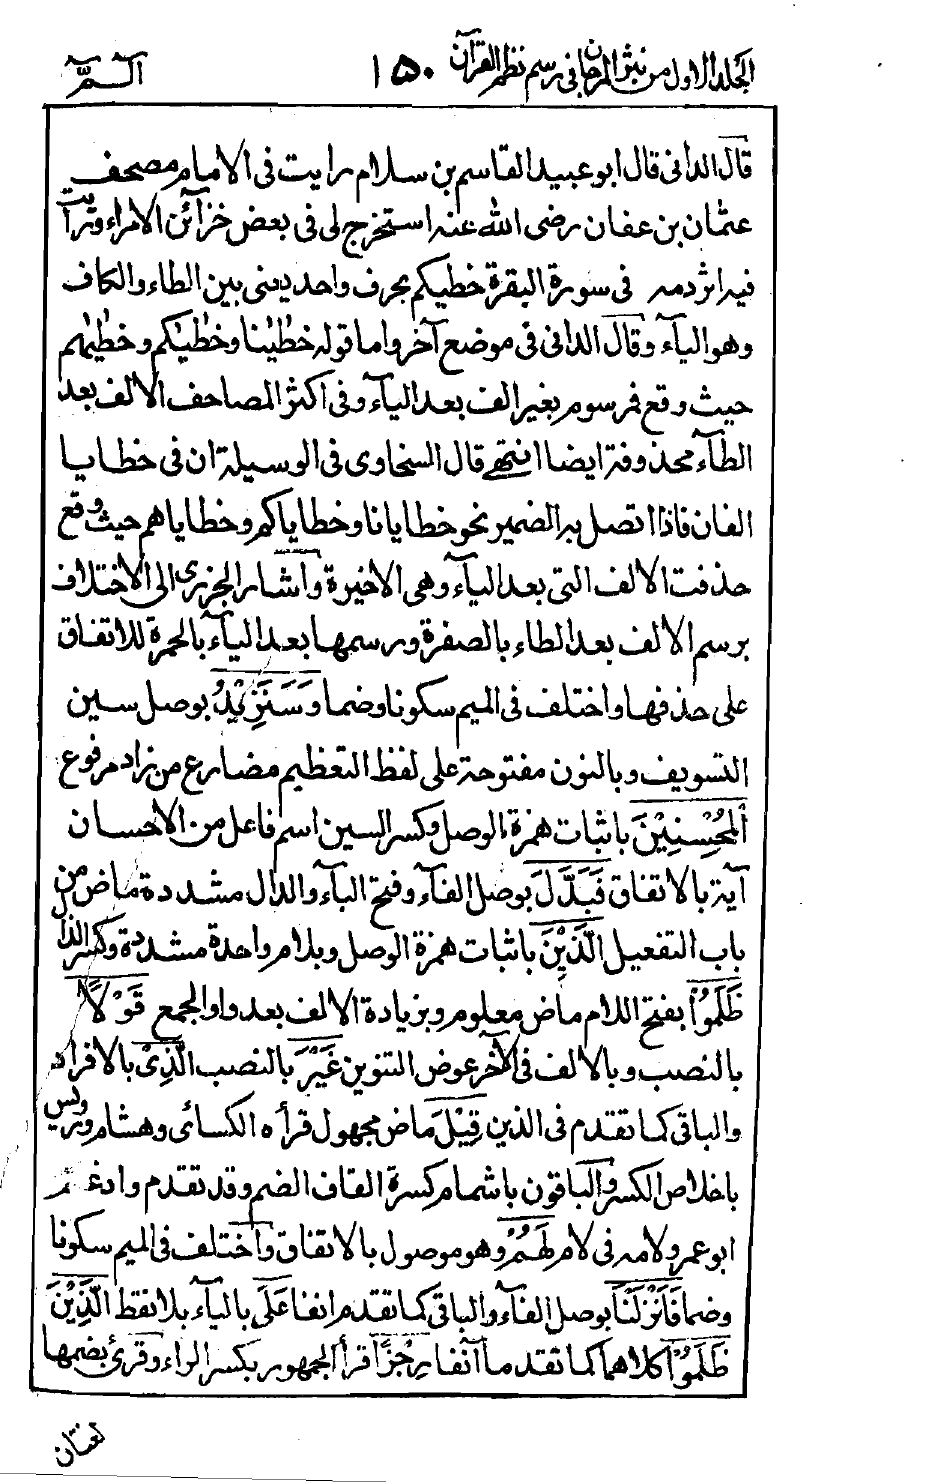 المجلد الاول من نثر المرجان في رسم نظم القرآن ١٥٠ آلــمّ
قال الدانى قال ابو عبيد القاسم بن سلام رايت فى الامام مصحف
عثمان بن عفان رضى الله عنه استخرج لى فى بعض خزآئن الامراء ورايت
فيه اثر دمه فى سورة البقرة خطيكم بحرف واحد يعنى بين الطاء والكاف
وهو اليآء وقال الدانى فى موضع آخر واما قوله خطٰيٰنا وخطٰيٰكم وخطٰيٰهم
حيث وقع فمرسوم بغير الف بعد اليآء وفى اكثر المصاحف الالف بعد
الطآء محذوفة ايضا انتهى قال السخاوى فى الوسيلة ان فى خطايا
الفان فاذا اتصل به الضمير نحو خطايانا وخطاياكم وخطاياهم حيث وقع
حذفت الالف التى بعد اليآء وهى الاخيرة واشار الجزرى الى الاختلاف
برسم الالف بعد الطاء بالصفرة ورسمها بعد اليآء بالحمرة للاتفاق
على حذفها واختلف فى الميم سكونا وضما وَسَنَزِيْدُ بوصل سين
التسويف وبالنون مفتوحة على لفظ التعظيم مضارع من زاد مرفوع
اَلْمُحْسِنِيْنَ باثبات همزة الوصل وكسر السين اسم فاعل من الاحسان
آية بالاتفاق فَبَدَّلَ بوصل الفآء وفتح البآء والدال مشددة ماض من
باب التفعيل الَّذِيْنَ باثبات همزة الوصل وبلام واحدة مشددة وكسر الذال
ظَلَمُوْا بفتح اللام ماض معلوم وبزيادة الالف بعد واو الجمع قَوْلًا
بالنصب وبالالف فى الآخر عوض التنوين غَيْرَ بالنصب الَّذِىْ بالافراد
والباقى كما تقدم فى الذين قِيْلَ ماض مجهول قرأه الكسائى وهشام ورويس
باخلاص الكسر والباقون باشمام كسرة القاف الضم وقد تقدم وادغم
ابو عمرو لامه فى لام لَهُمْ وهو موصول بالاتفاق واختلف فى الميم سكونا
وضما فَاَنْزَلْنَا بوصل الفآء والباقى كما تقدم انفا عَلَى بالياء بلا نقط الَّذِيْنَ
ظَلَمُوْا كلاهما كما تقدما آنفا رِجْزًا قرأ الجمهور بكسر الراء وقرئ بضمها
لغتان